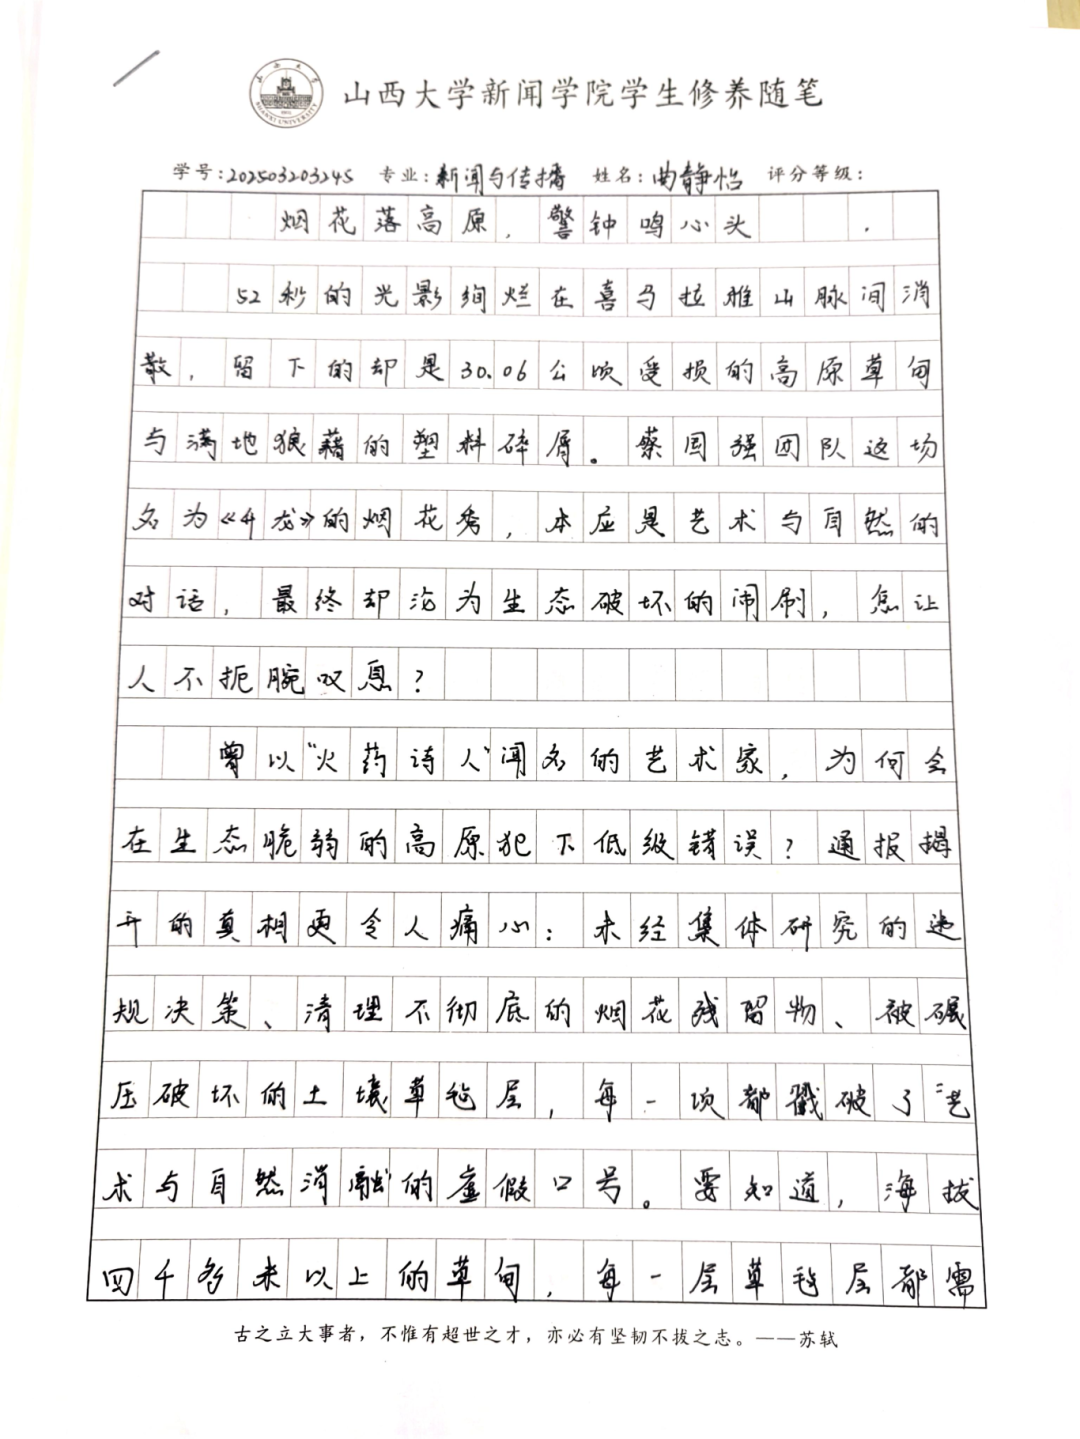 山西大学新闻学院学生修养随笔
学号:202503203245 专业:新闻与传播 姓名:曲静怡 评分等级:
烟花落高原，警钟鸣心头
52秒的光影绚烂在喜马拉雅山脉间消
散，留下的却是30.06公顷受损的高原草甸
与满地狼藉的塑料碎屑。蔡国强团队这场
名为《升龙》的烟花秀，本应是艺术与自然的
对话，最终却沦为生态破坏的闹剧，怎让
人不扼腕叹息？
曾以"火药诗人"闻名的艺术家，为何会
在生态脆弱的高原犯下低级错误？通报揭
开的真相更令人痛心：未经集体研究的违
规决策、清理不彻底的烟花残留物、被碾
压破坏的土壤草毡层，每一项都戳破了"艺
术与自然消融"的虚假口号。要知道，海拔
四千多米以上的草甸，每一层草毡层都需
古之立大事者，不惟有超世之才，亦必有坚韧不拔之志。——苏轼